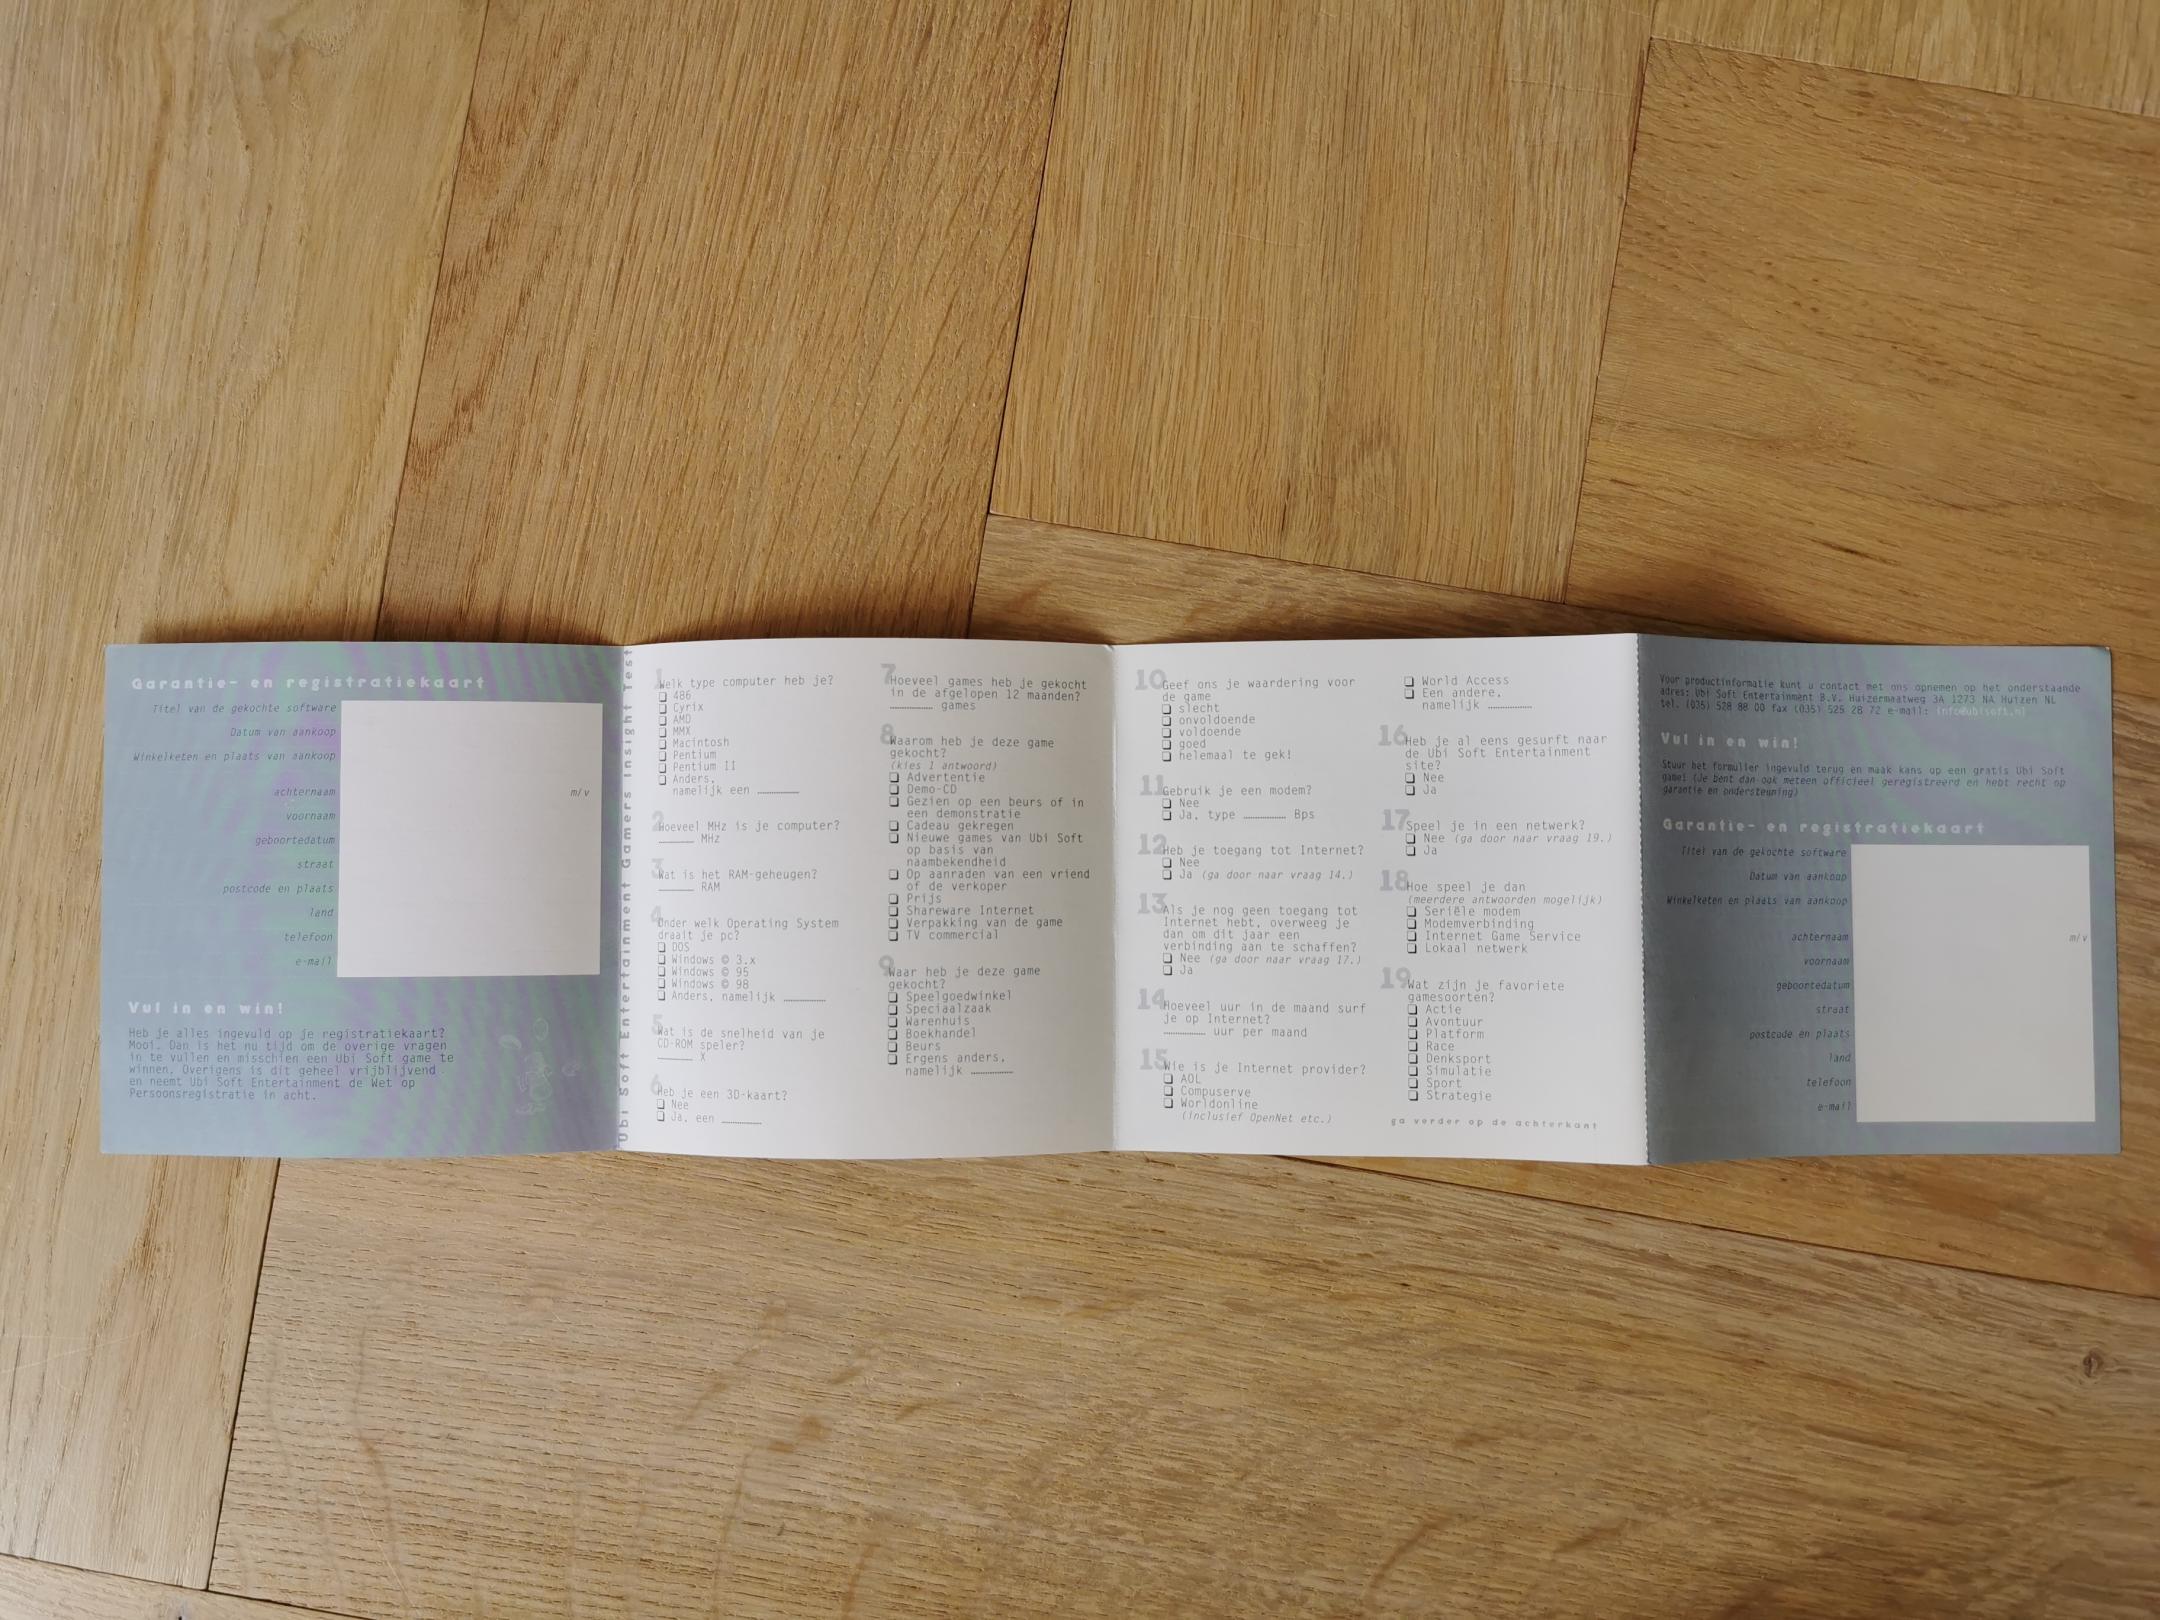 Garantie- en registratiekaart
Titel van de gekochte software
Datum van aankoop
Winkelketen en plaats van aankoop
achternaam
m/v
voornaam
geboortedatum
straat
postcode en plaats
land
telefoon
e-mail
Vul in en win!
Heb je alles ingevuld op je registratiekaart?
Mooi. Dan is het nu tijd om de overige vragen
in te vullen en misschien een Ubi Soft game te
winnen. Overigens is dit geheel vrijblijvend
en neemt Ubi Soft Entertainment de Wet op
Persoonsregistratie in acht.
Ubi Soft Entertainment Gamers Insight Test
1 Welk type computer heb je?
486
Cyrix
AMD
MMX
Macintosh
Pentium
Pentium II
Anders,
namelijk een ............
2 Hoeveel MHz is je computer?
............ MHz
3 Wat is het RAM-geheugen?
............ RAM
4 Onder welk Operating System
draait je pc?
DOS
Windows © 3.x
Windows © 95
Windows © 98
Anders, namelijk ............
5 Wat is de snelheid van je
CD-ROM speler?
............ X
6 Heb je een 3D-kaart?
Nee
Ja, een ............
7 Hoeveel games heb je gekocht
in de afgelopen 12 maanden?
............ games
8 Waarom heb je deze game
gekocht?
(kies 1 antwoord)
Advertentie
Demo-CD
Gezien op een beurs of in
een demonstratie
Cadeau gekregen
Nieuwe games van Ubi Soft
op basis van
naambekendheid
Op aanraden van een vriend
of de verkoper
Prijs
Shareware Internet
Verpakking van de game
TV commercial
9 Waar heb je deze game
gekocht?
Speelgoedwinkel
Speciaalzaak
Warenhuis
Boekhandel
Beurs
Ergens anders,
namelijk ............
10 Geef ons je waardering voor
de game
slecht
onvoldoende
voldoende
goed
helemaal te gek!
11 Gebruik je een modem?
Nee
Ja, type ............ Bps
12 Heb je toegang tot Internet?
Nee
Ja (ga door naar vraag 14.)
13 Als je nog geen toegang tot
Internet hebt, overweeg je
dan om dit jaar een
verbinding aan te schaffen?
Nee (ga door naar vraag 17.)
Ja
14 Hoeveel uur in de maand surf
je op Internet?
............ uur per maand
15 Wie is je Internet provider?
AOL
Compuserve
Worldonline
(inclusief OpenNet etc.)
World Access
Een andere,
namelijk ............
16 Heb je al eens gesurft naar
de Ubi Soft Entertainment
site?
Nee
Ja
17 Speel je in een netwerk?
Nee (ga door naar vraag 19.)
Ja
18 Hoe speel je dan
(meerdere antwoorden mogelijk)
Seriële modem
Modemverbinding
Internet Game Service
Lokaal netwerk
19 Wat zijn je favoriete
gamesoorten?
Actie
Avontuur
Platform
Race
Denksport
Simulatie
Sport
Strategie
ga verder op de achterkant
Voor productinformatie kunt u contact met ons opnemen op het onderstaande
adres: Ubi Soft Entertainment B.V. Huizermaatweg 3A 1273 NA Huizen NL
tel. (035) 528 88 00 fax (035) 525 28 72 e-mail: info@ubisoft.nl
Vul in en win!
Stuur het formulier ingevuld terug en maak kans op een gratis Ubi Soft
game! (Je bent dan ook meteen officieel geregistreerd en hebt recht op
garantie en ondersteuning)
Garantie- en registratiekaart
Titel van de gekochte software
Datum van aankoop
Winkelketen en plaats van aankoop
achternaam
m/v
voornaam
geboortedatum
straat
postcode en plaats
land
telefoon
e-mail